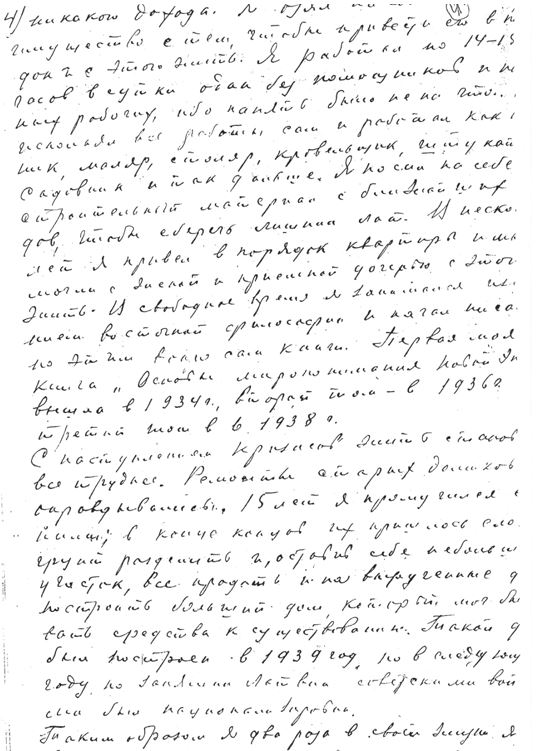 4) никакого дохода. Я взял
имущество с тем, чтобы привести его в
дом с этого жить. Я работал по 14-15
часов в сутки один без помощников и
ных рабочих, ибо нанять было не на что.
исполнял все работы сам и работал как
ник, маляр, столяр, кровельщик, штукат
садовник и так дальше. Я носил на себе
строительный материал с ближайших
дов, чтобы сберечь лишний лат. И неско
лет я привел в порядок квартиры и мы
могли с женой и приемной дочерью с этого
жить. И свободное время я занимался из
нием восточной философии и начал писа
по этим сам книги. Первая моя
книга „Основы миропонимания Новой Эп
вышла в 1934г., второй том - в 1936г.
третий том в 1938г.
С наступлением кризисов жить станов
все труднее. Ремонты старых домиков
оправдывались. 15 лет я промучился с
ними; в конце концов их пришлось сло
грунт разделить и, оставив себе небольш
участок, все продать и на вырученные д
построить больший дом, который мог бы
вать средства к существованию. Такой д
был построен в 1939 год, но в следующ
году по занятии Латвии советскими вой
ми был национализирован.
Таким образом я два раза в своей жизни